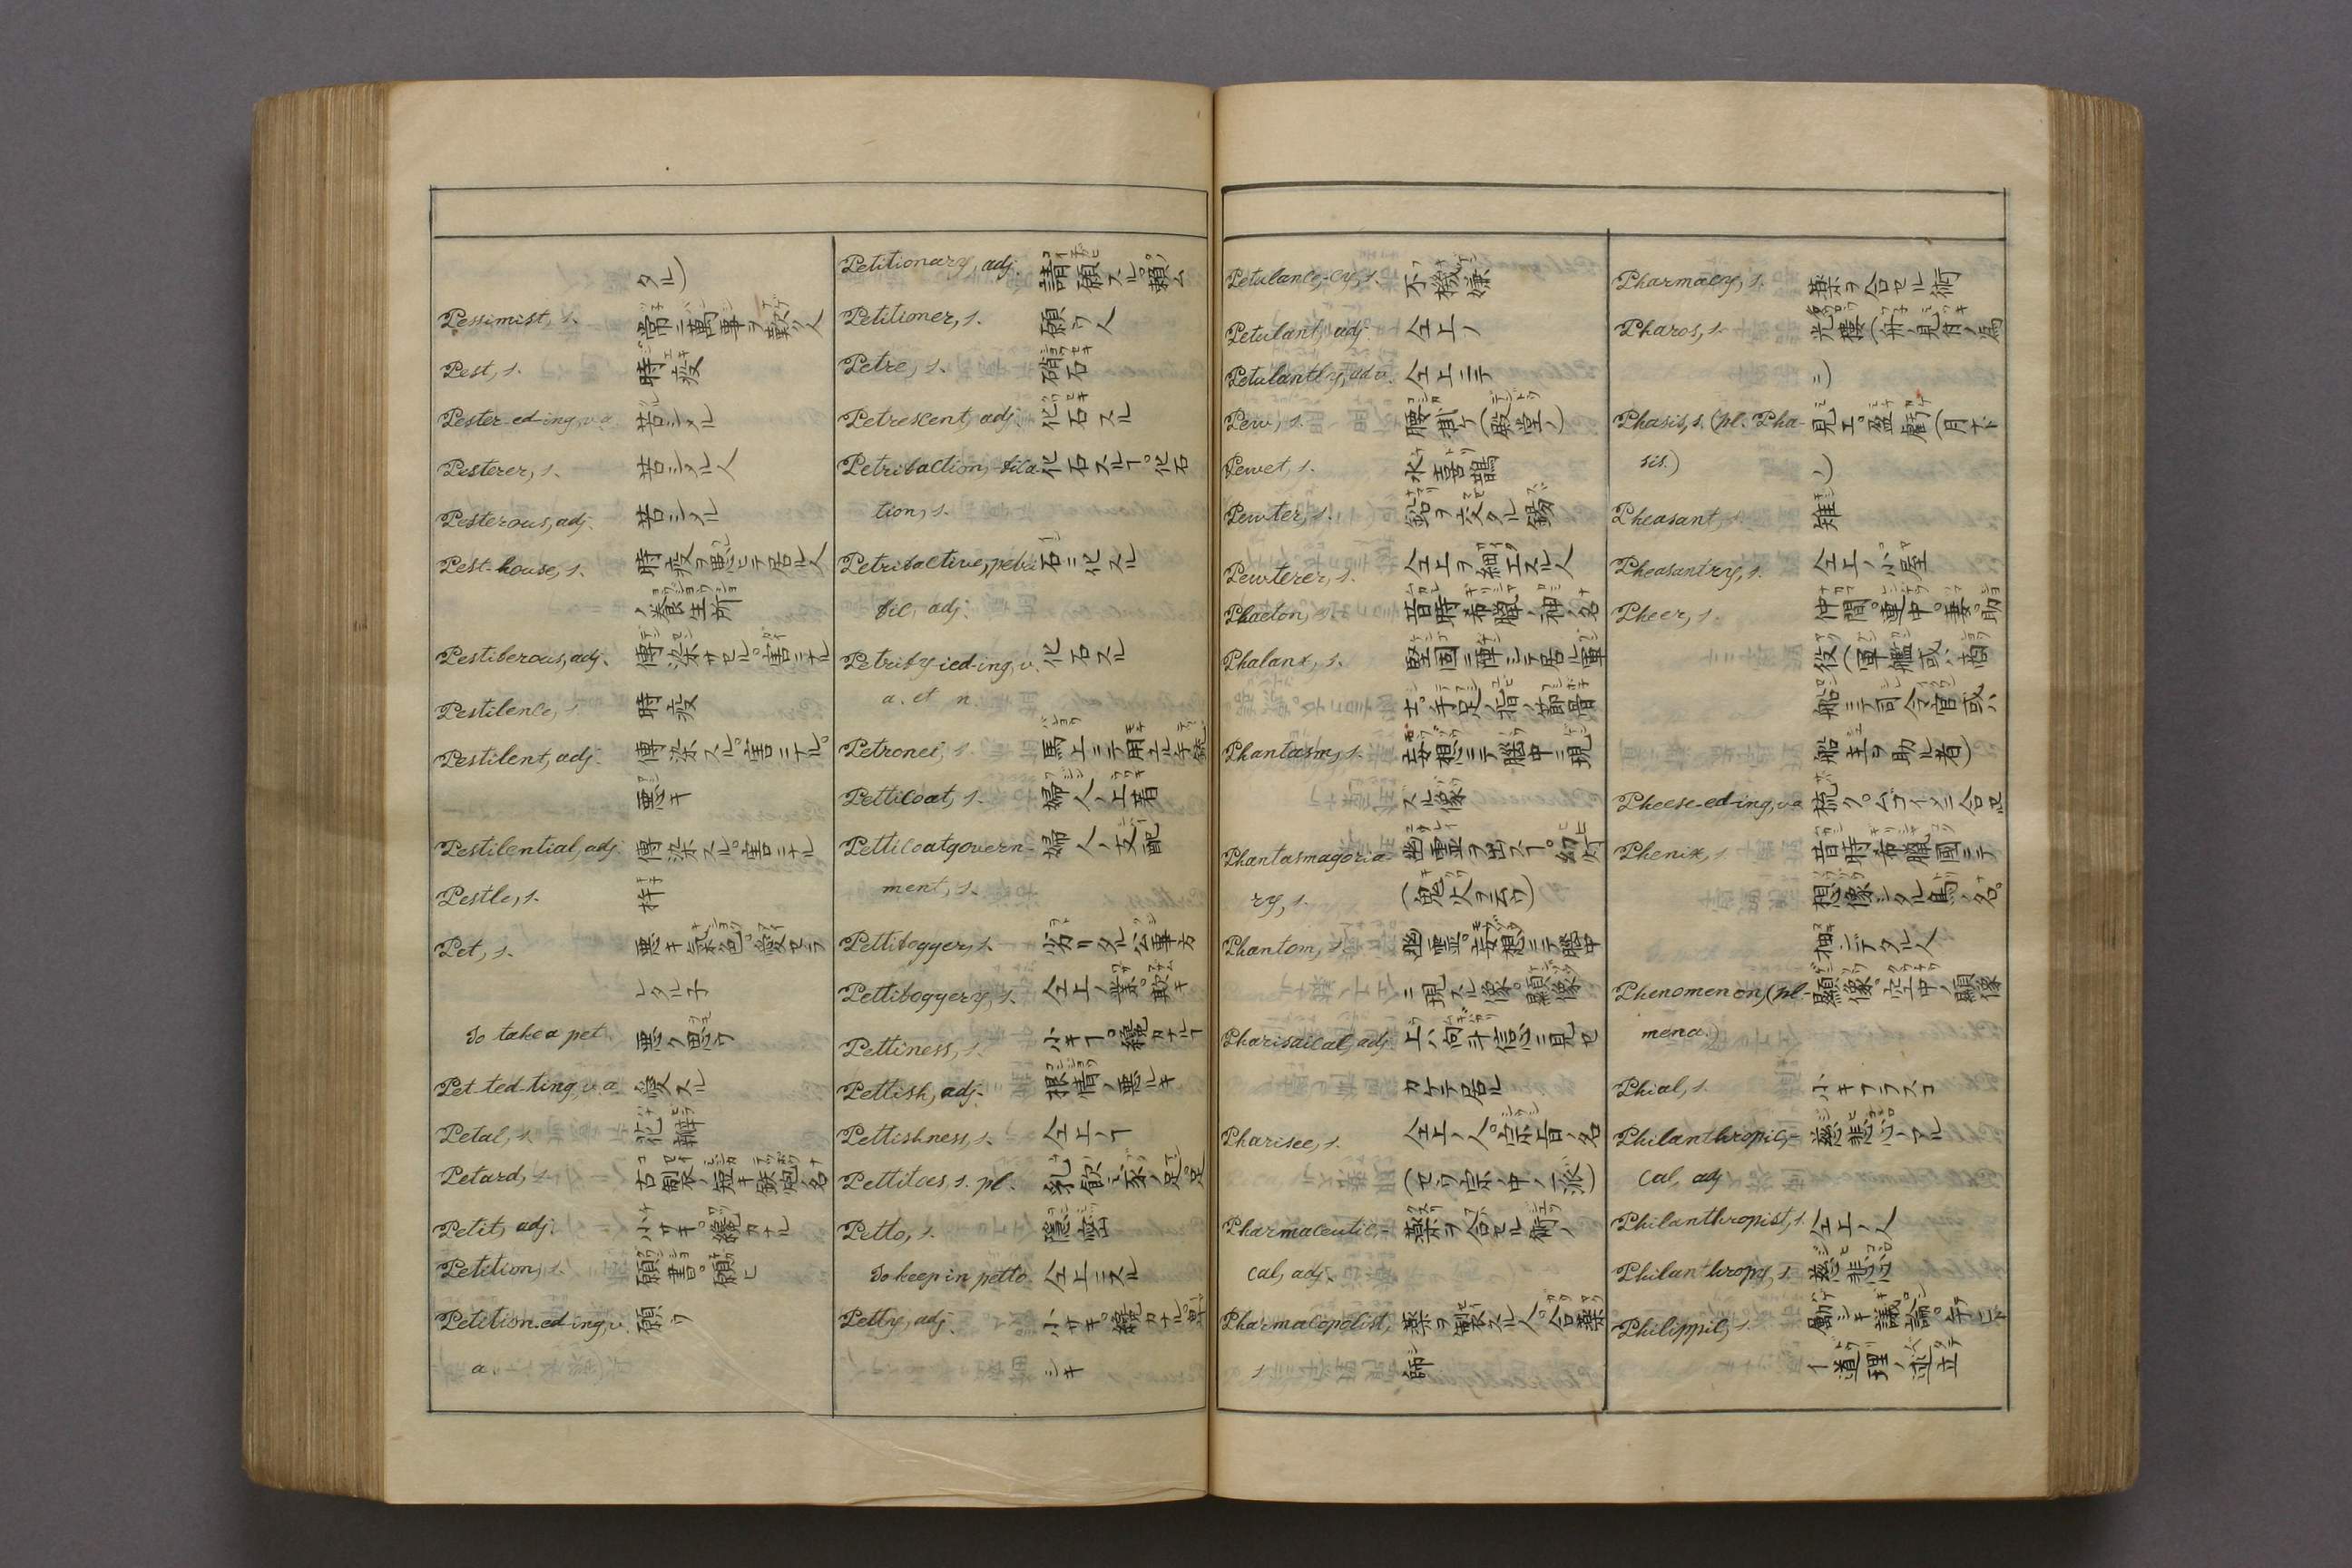 タル)
Pessimist, s. 常ニ萬事ヲ歎ク人
Pest, s. 時疫
Pester-ed-ing, v.a. 苦シメル
Pesterer, s. 苦シメル人
Pesterous, adj. 苦シメル
Pest-house, s. 時疫ヲ患ヒテ居ル人
ノ養生所
Pestiferous, adj. 傳染サセル。害ニナル
Pestilence, s. 時疫
Pestilent, adj. 傳染スル。害ニナル。
悪キ
Pestilential, adj. 傳染スル。害ニナル
Pestle, s. 杵
Pet, s. 悪キ気色。愛セラ
レタル子
To take a pet. 悪ク思フ
Pet-ted-ting, v.a. 愛スル
Petal, s. 花瓣
Petard, s. 古制ノ短キ鉄炮ノ名
Petit, adj. 小サキ。纔カナル
Petition, s. 願書。願ヒ
Petition-ed-ing, v. 願フ
a.
Petitionary, adj. 請願スル。頼ム
Petitioner, s. 願フ人
Petre, s. 硝石
Petrescent, adj. 化石スル
Petrifaction, -fica- 化石スルヿ。化石
tion, s.
Petrifactive, petri- 石ニ化スル
fic, adj.
Petrify-ied-ing, v. 化石スル
a. et n.
Petronel, s. 馬上ニテ用ユル手銃
Petticoat, s. 婦人ノ上着
Petticoatgovern- 婦人ノ支配
ment, s.
Pettifogger, s. 劣リタル公事方
Pettifoggery, s. 仝上ノ業。欺キ
Pettiness, s. 小キヿ。纔カナルヿ
Pettish, adj. 根情ノ悪ルキ
Pettishness, s. 仝上ノヿ
Pettitoes, s. pl. 乳飲ミ豕ノ足。足
Petto, s. 隠密
To keep in petto. 仝上ニスル
Petty, adj. 小サキ。纔カナル。卑
シキ
Petulance,-cy, s. 不機嫌
Petulant, adj. 仝上ノ
Petulantly, adv. 仝上ニテ
Pew, s. 腰掛ケ(殿堂ノ)
Pewet, s. 水喜鵲
Pewter, s. 鉛ヲ交タル錫
Pewterer, s. 仝上ヲ細工スル人
Phaeton, s. 昔時希臘ノ神ノ名
Phalanx, s. 堅固ニ陣シテ居ル軍
士。手足ノ指ノ節骨
Phantasm, s. 妄想ニテ腦中ニ現
スル像
Phantasmagoria- 幽霊ヲ出スヿ。幻灯
ry, s. (鬼火ヲ云フ)
Phantom, s. 幽霊。妄想ニテ腦中
ニ現スル像。顯像
Pharisaical, adj. 上ハ向キ信心ニ見セ
カケテ居ル
Pharisee, s. 仝上ノ人。宗旨ノ名
(セウ宗ノ中ノ一派)
Pharmaceutic,- 薬ヲ合セル術ノ
cal, adj.
Pharmacopolist, 薬ヲ製スル人。合薬
s. 師
Pharmacy, s. 薬ヲ合セル術
Pharos, s. 光樓(舟ノ見當ノ為
ニ)
Phasis, s. (pl. Pha- 見エ。盈虧(月ナド
sis.) ノ)
Pheasant, s. 雉
Pheasantry, s. 仝上ノ小屋
Pheer, s. 仲間。連中。妻。助
役(軍艦或ハ商
船ニテ司令官或ハ
船主ヲ助ル者)
Pheese-ed-ing, v.a. 梳ク。ムゴイメニ合セ
Phenix, s. 昔時希臘國ニテ
想像シタル鳥ノ名。
抽ンデタル人
Phenomenon, (pl.- 顯像。空中ノ顯像
mena.)
Phial, s. 小キフラスコ
Philanthropic,- 慈悲心ノアル
cal, adj.
Philanthropist, s. 仝上ノ人
Philanthropy, s. 慈悲心
Philippic, s. 勵シキ議論。手ヒド
イ道理ノ述立